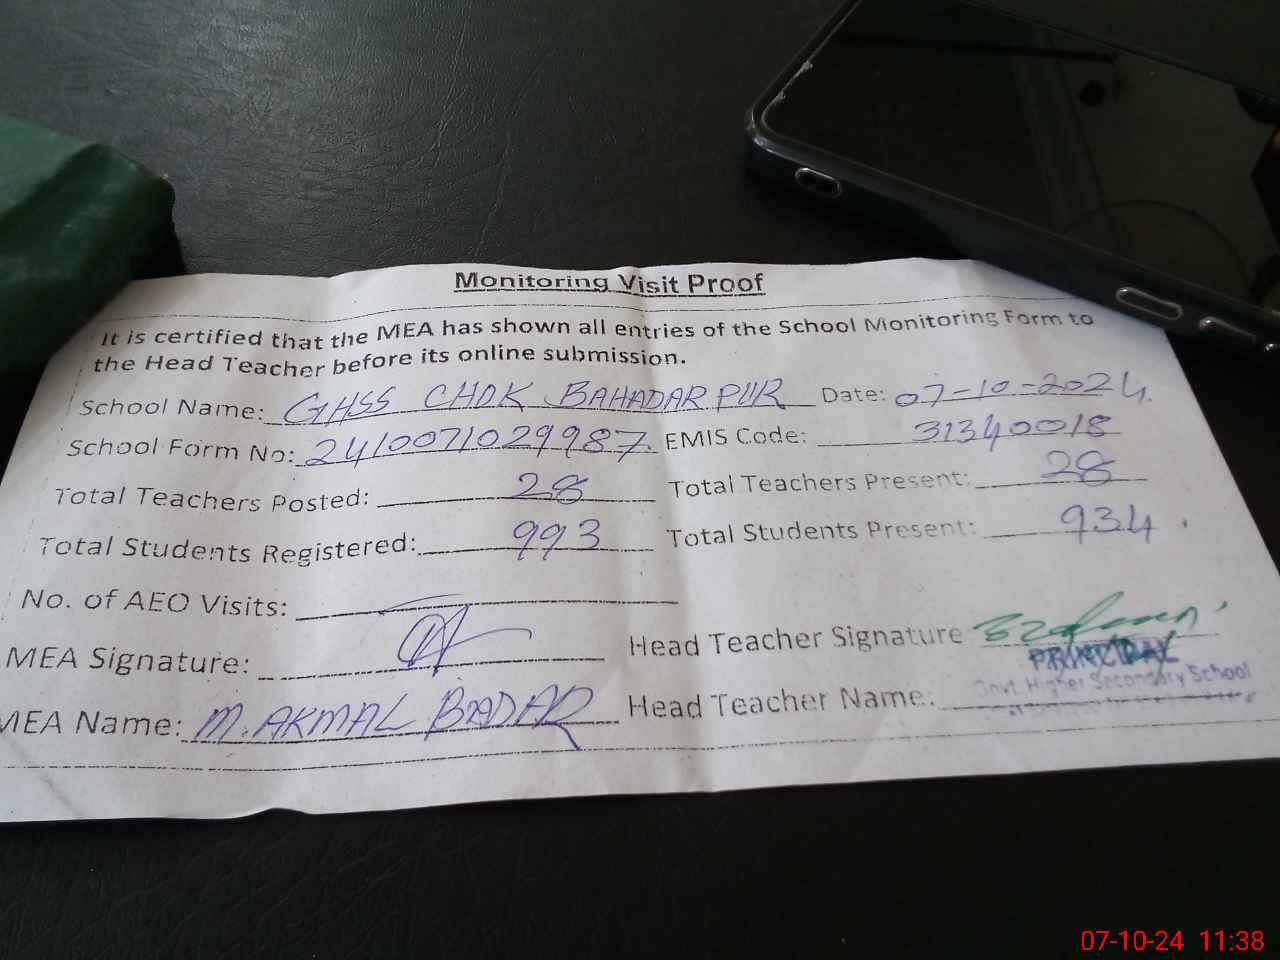 Monitoring Visit Proof
It is certified that the MEA has shown all entries of the School Monitoring Form to
the Head Teacher before its online submission.
School Name: GHSS CHOK BAHADARPUR Date: 07-10-2024.
School Form No: 2410071029987. EMIS Code: 31340018
Total Teachers Posted: 28 Total Teachers Present: 28
Total Students Registered: 993 Total Students Present: 934
No. of AEO Visits:
MEA Signature: Head Teacher Signature
PRINCIPAL
Govt. Higher Secondary School
MEA Name: M. AKMAL BADAR Head Teacher Name:
07-10-24 11:38